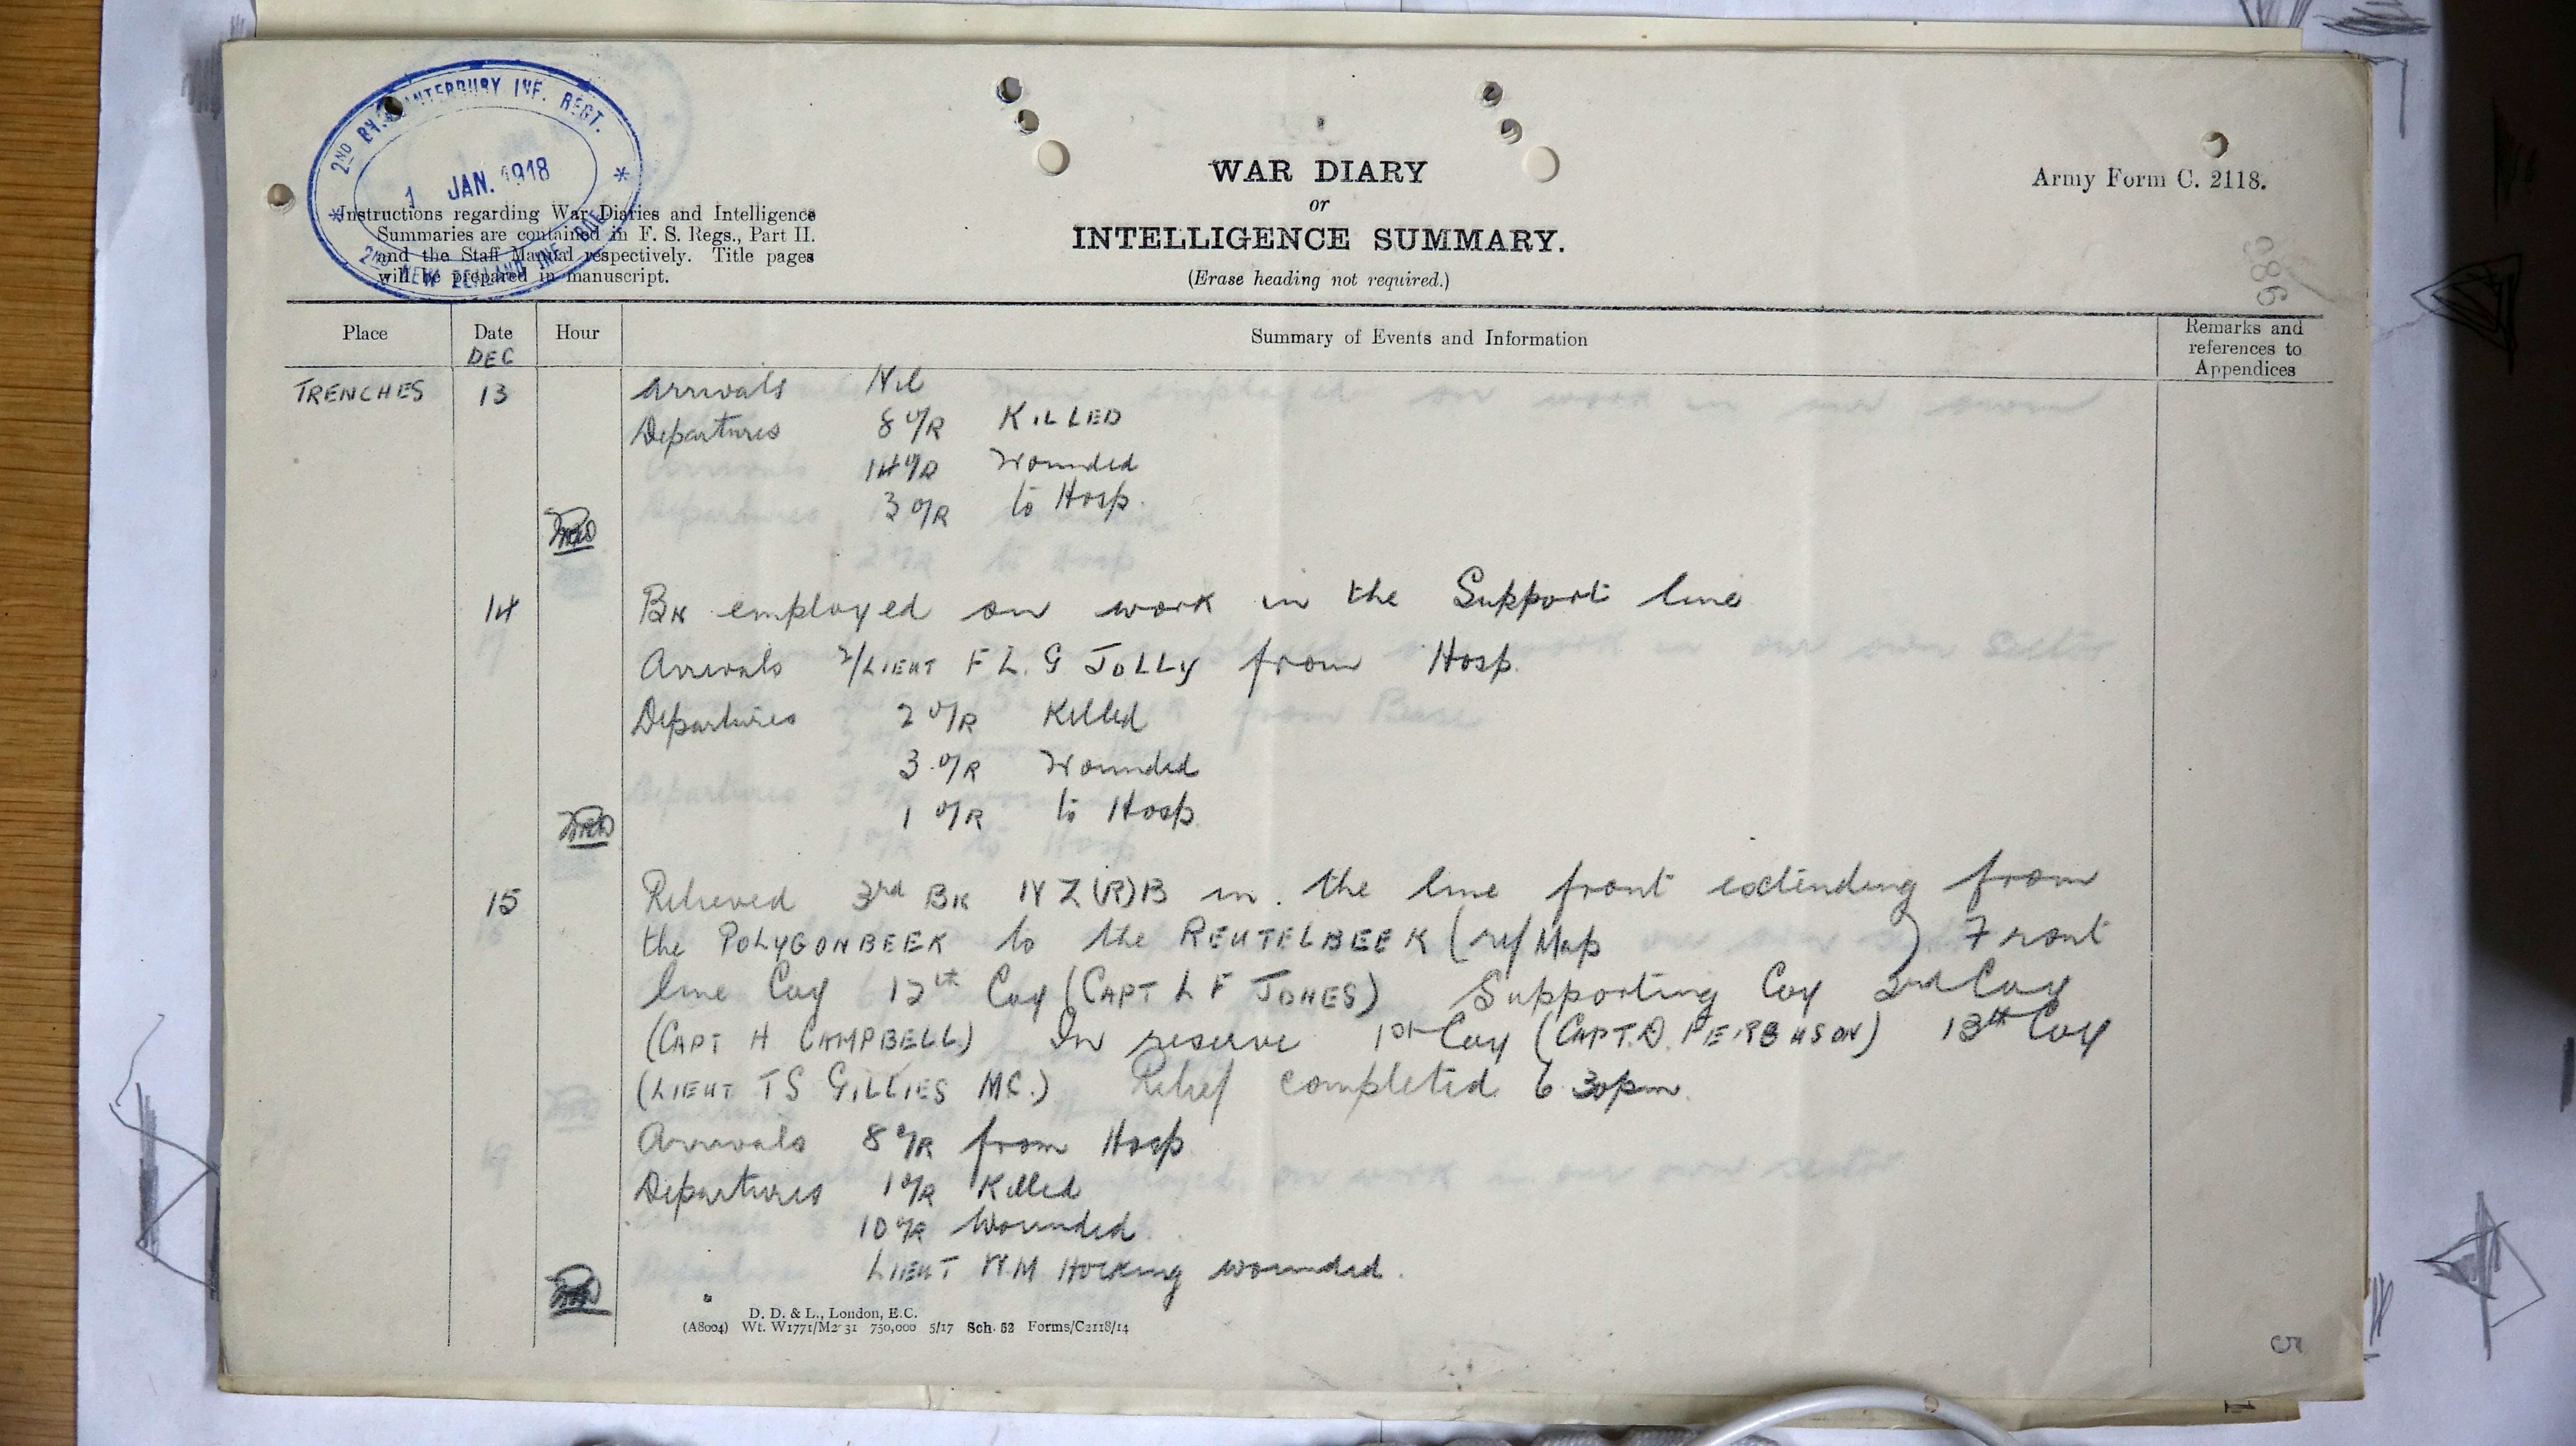 2ND BN. CANTERBURY INF. REGT.
1 JAN. 1918
2ND NEW ZEALAND INF. BDE
Instructions regarding War Diaries and Intelligence
Summaries are contained in F. S. Regs., Part II.
and the Staff Manual respectively. Title pages
will be prepared in manuscript.
WAR DIARY
or
INTELLIGENCE SUMMARY.
(Erase heading not required.)
Army Form C. 2118.
086
Place Date Hour Summary of Events and Information Remarks and
references to
Appendices
DEC
TRENCHES 13 Arrivals Nil
Departures 8 O/R KILLED
14 O/R Wounded
3 O/R to Hosp.
14 BN employed on work in the Support line
Arrivals 2/LIEUT F L. G JOLLY from Hosp.
Departures 2 O/R Killed
3 O/R Wounded
1 O/R to Hosp
15 Relieved 3rd BN N Z (R) B in the line front extending from
the POLYGONBEEK to the REUTELBEEK (ref Map ) Front
line Coy 12th Coy (CAPT L F JONES) Supporting Coy 2nd Coy
(CAPT H CAMPBELL) In reserve 1st Coy (CAPT. D. FERGUSON) 13th Coy
(LIEUT T S GILLIES MC.) Relief completed 6 30pm.
Arrivals 8 O/R from Hosp
Departures 1 O/R Killed
10 O/R Wounded.
LIEUT W.M Hocking wounded.
D. D. & L., London, E.C.
(A8004) Wt. W1771/M2 31 750,000 5/17 Sch. 52 Forms/C2118/14
5